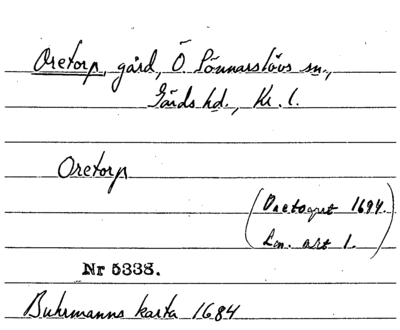 Oretorp, gård, Ö. Sönnarslövs sn.,
Gärds hd., Kr. l.
Oretorp
(Oretorpet 1694.
Lm. art 1.)
Nr 5338.
Buhrmanns karta 1684